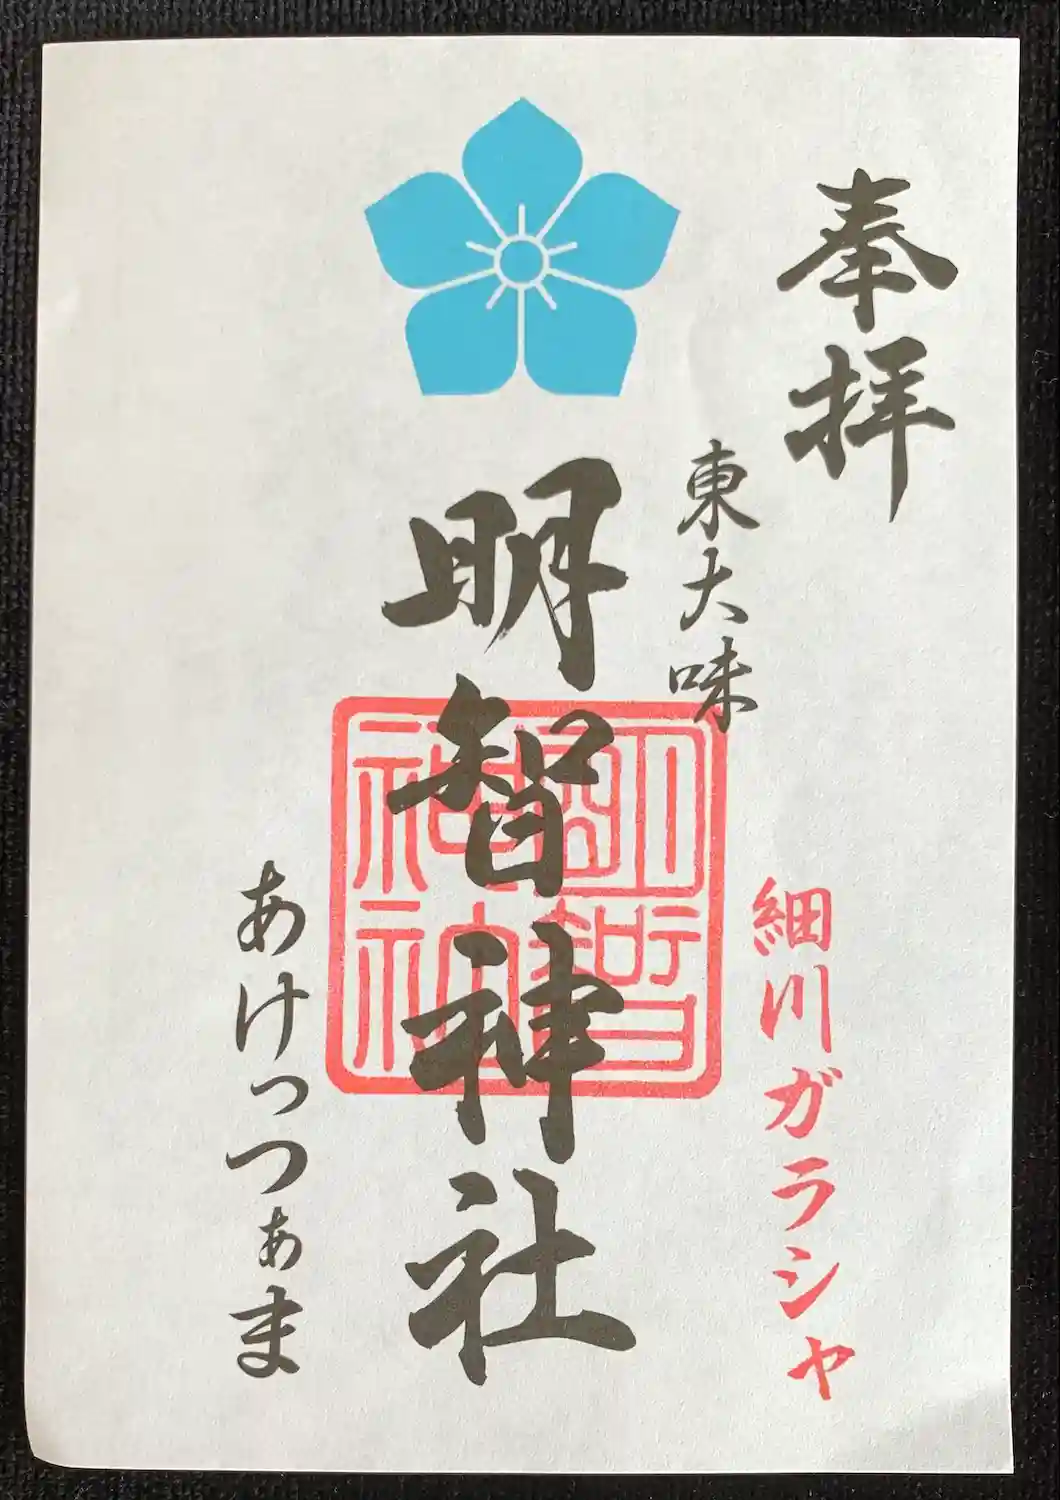 奉拝
東大味
細川ガラシャ
明智神社
明智神社
あけっつぁま